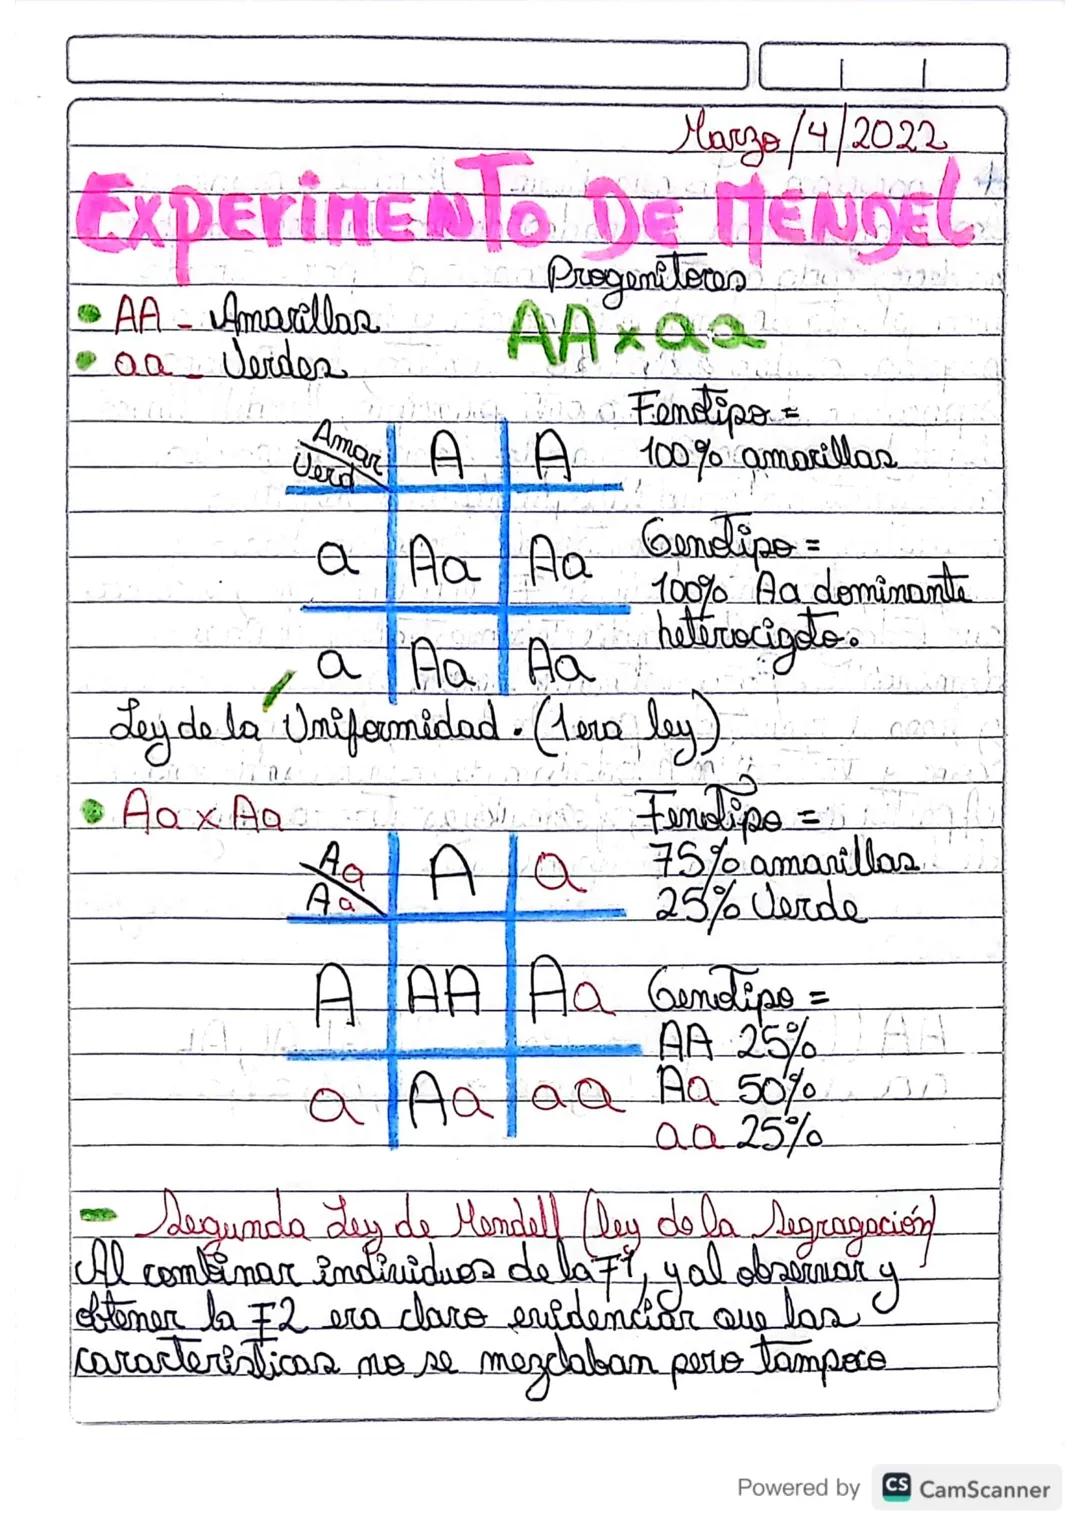 Marzo/4/2022
EXPERIMENTO DE MENDEL
Progenitores
• AA - Amarillas
AA x aa
• aa - Verdes
Fenotipo =
100% amarillas
Amar A A
Verd
a Aa Aa
Genotipo =
100% Aa dominante
heterocigoto.
a Aa Aa
Ley de la Uniformidad. (1era ley)
• Aa x Aa
Fenotipo =
75% amarillas
25% Verde
Aa A a
Aa
A AA Aa
a Aa aa
Genotipo =
AA 25%
Aa 50%
aa 25%
- Segunda Ley de Mendell (ley de la Segragación)
Al combinar individuos de la F1, y al observar y
obtener la F2 era claro evidenciar que las
características no se mezclaban pero tampoco
Powered by CS CamScanner